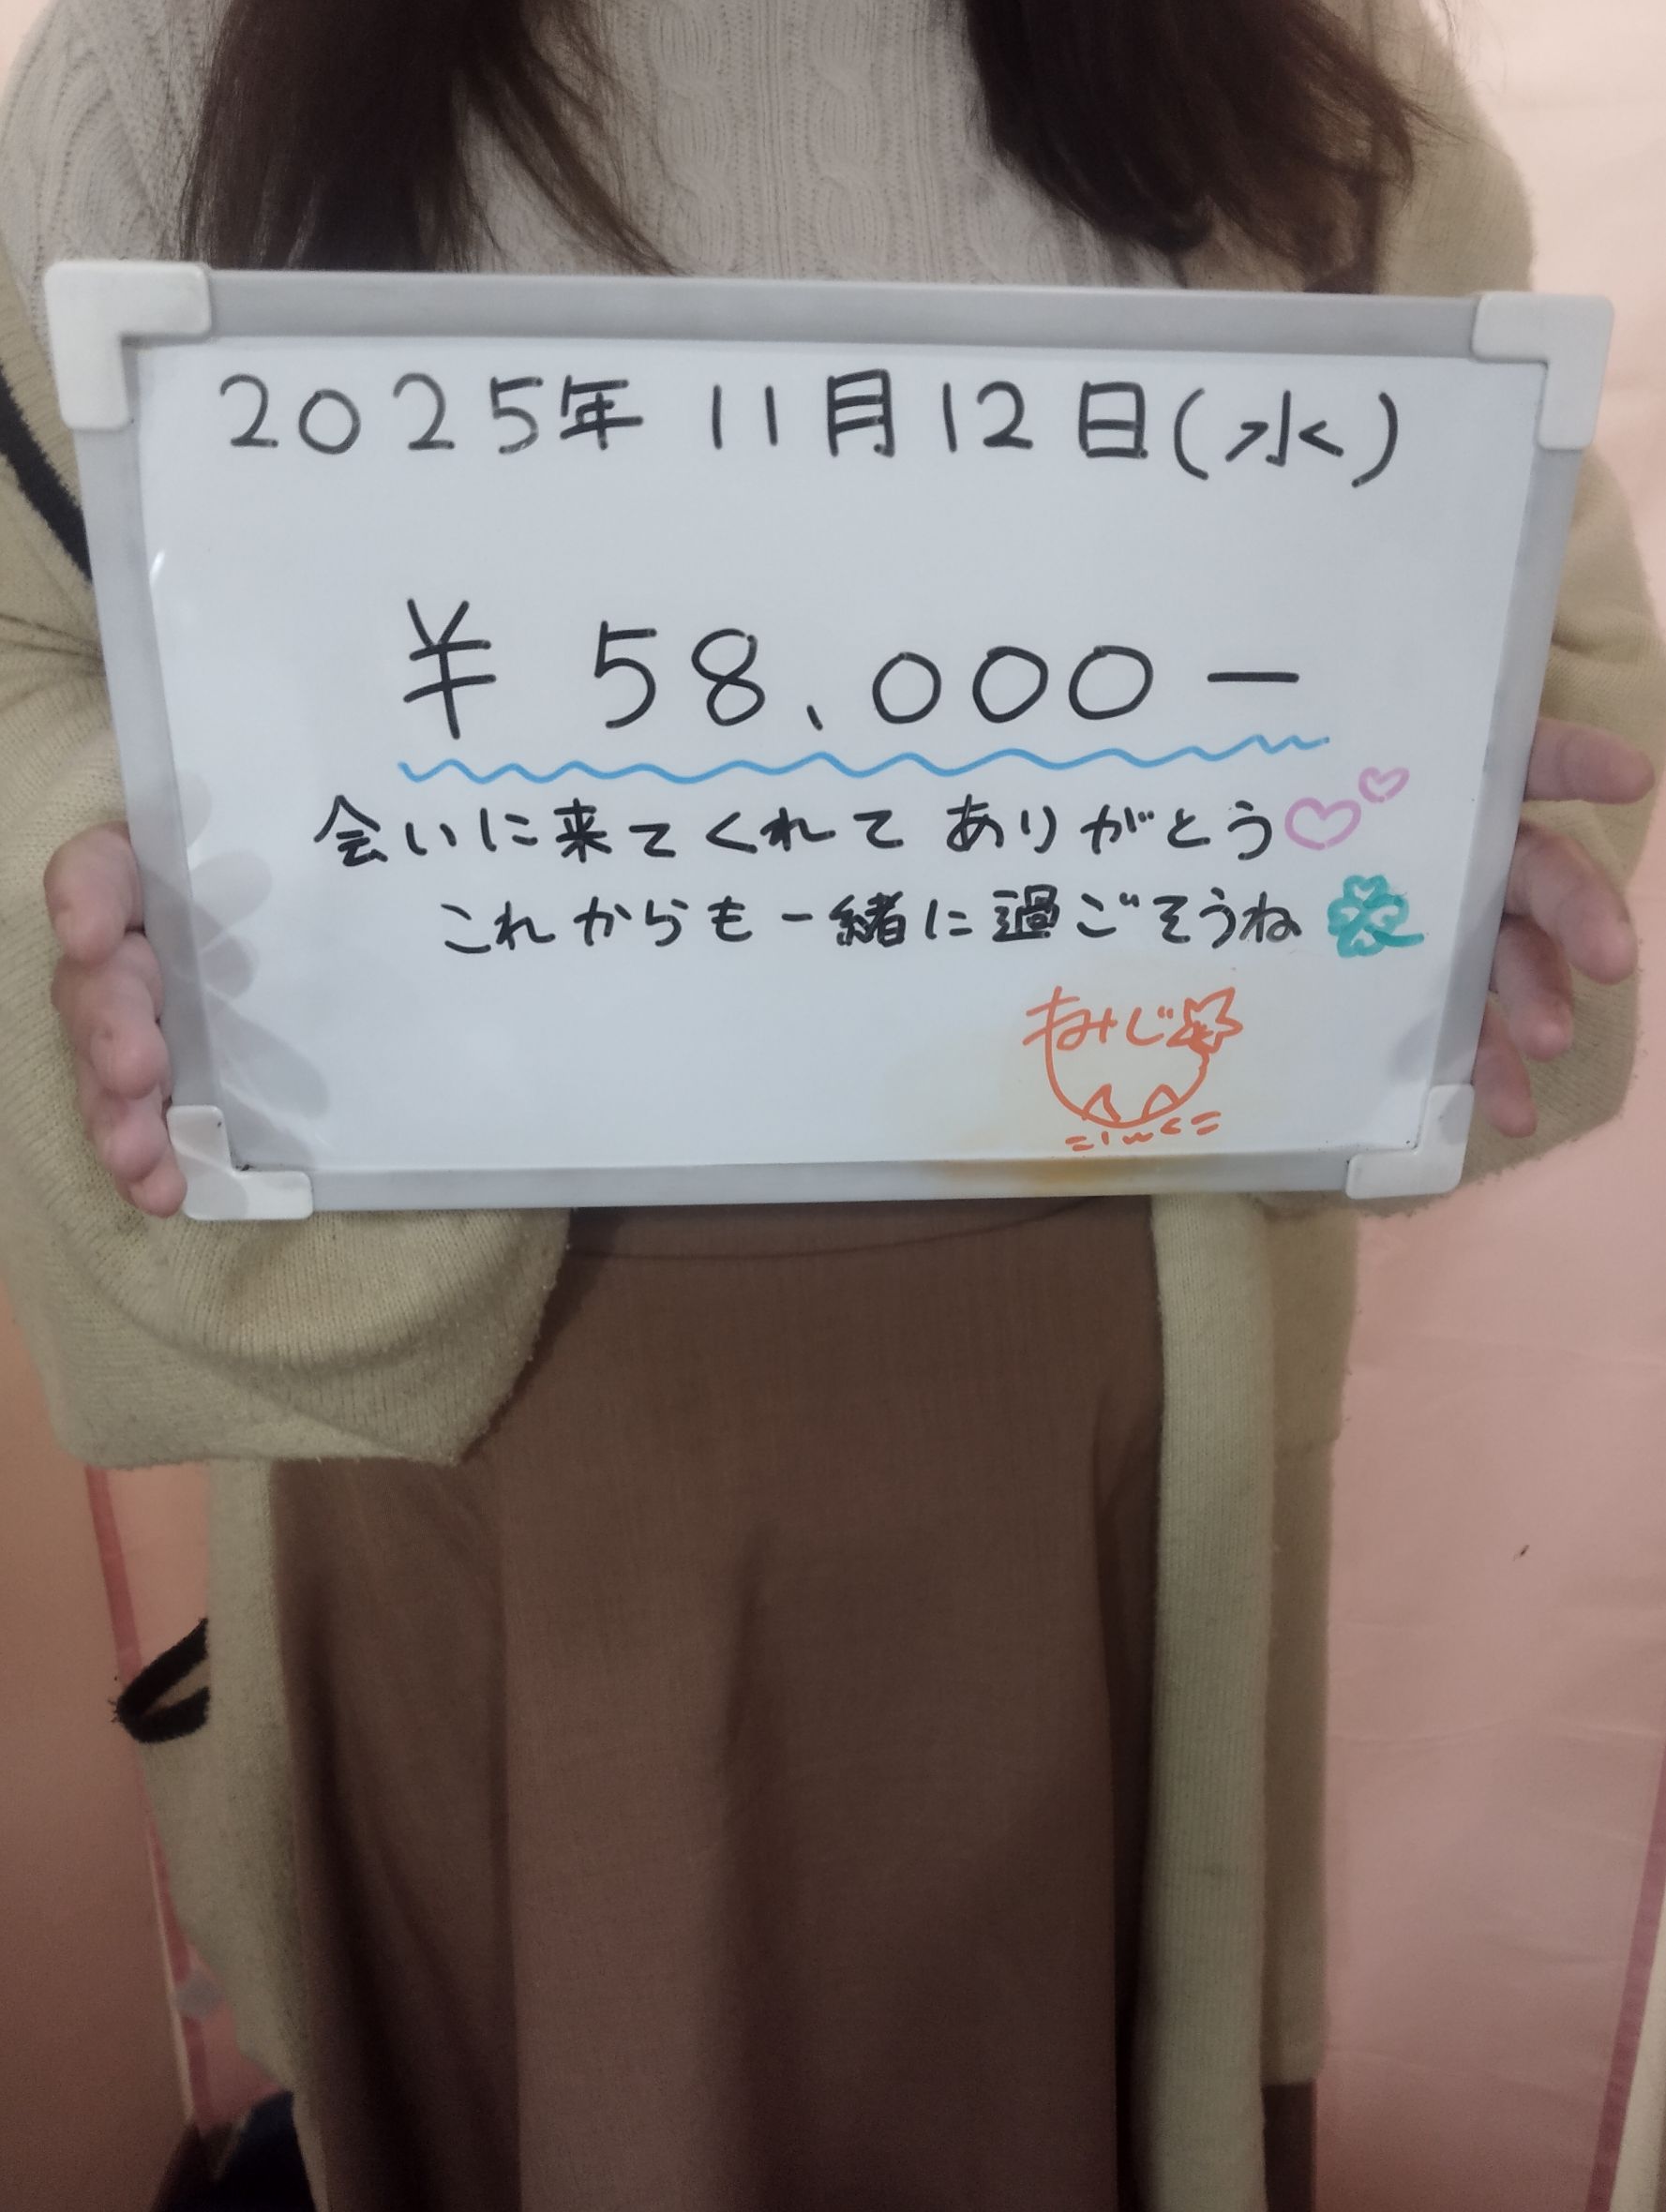 2025年 11月12日(水)
¥ 58,000-
会いに来てくれて ありがとう
これからも一緒に過ごそうね
もみじ